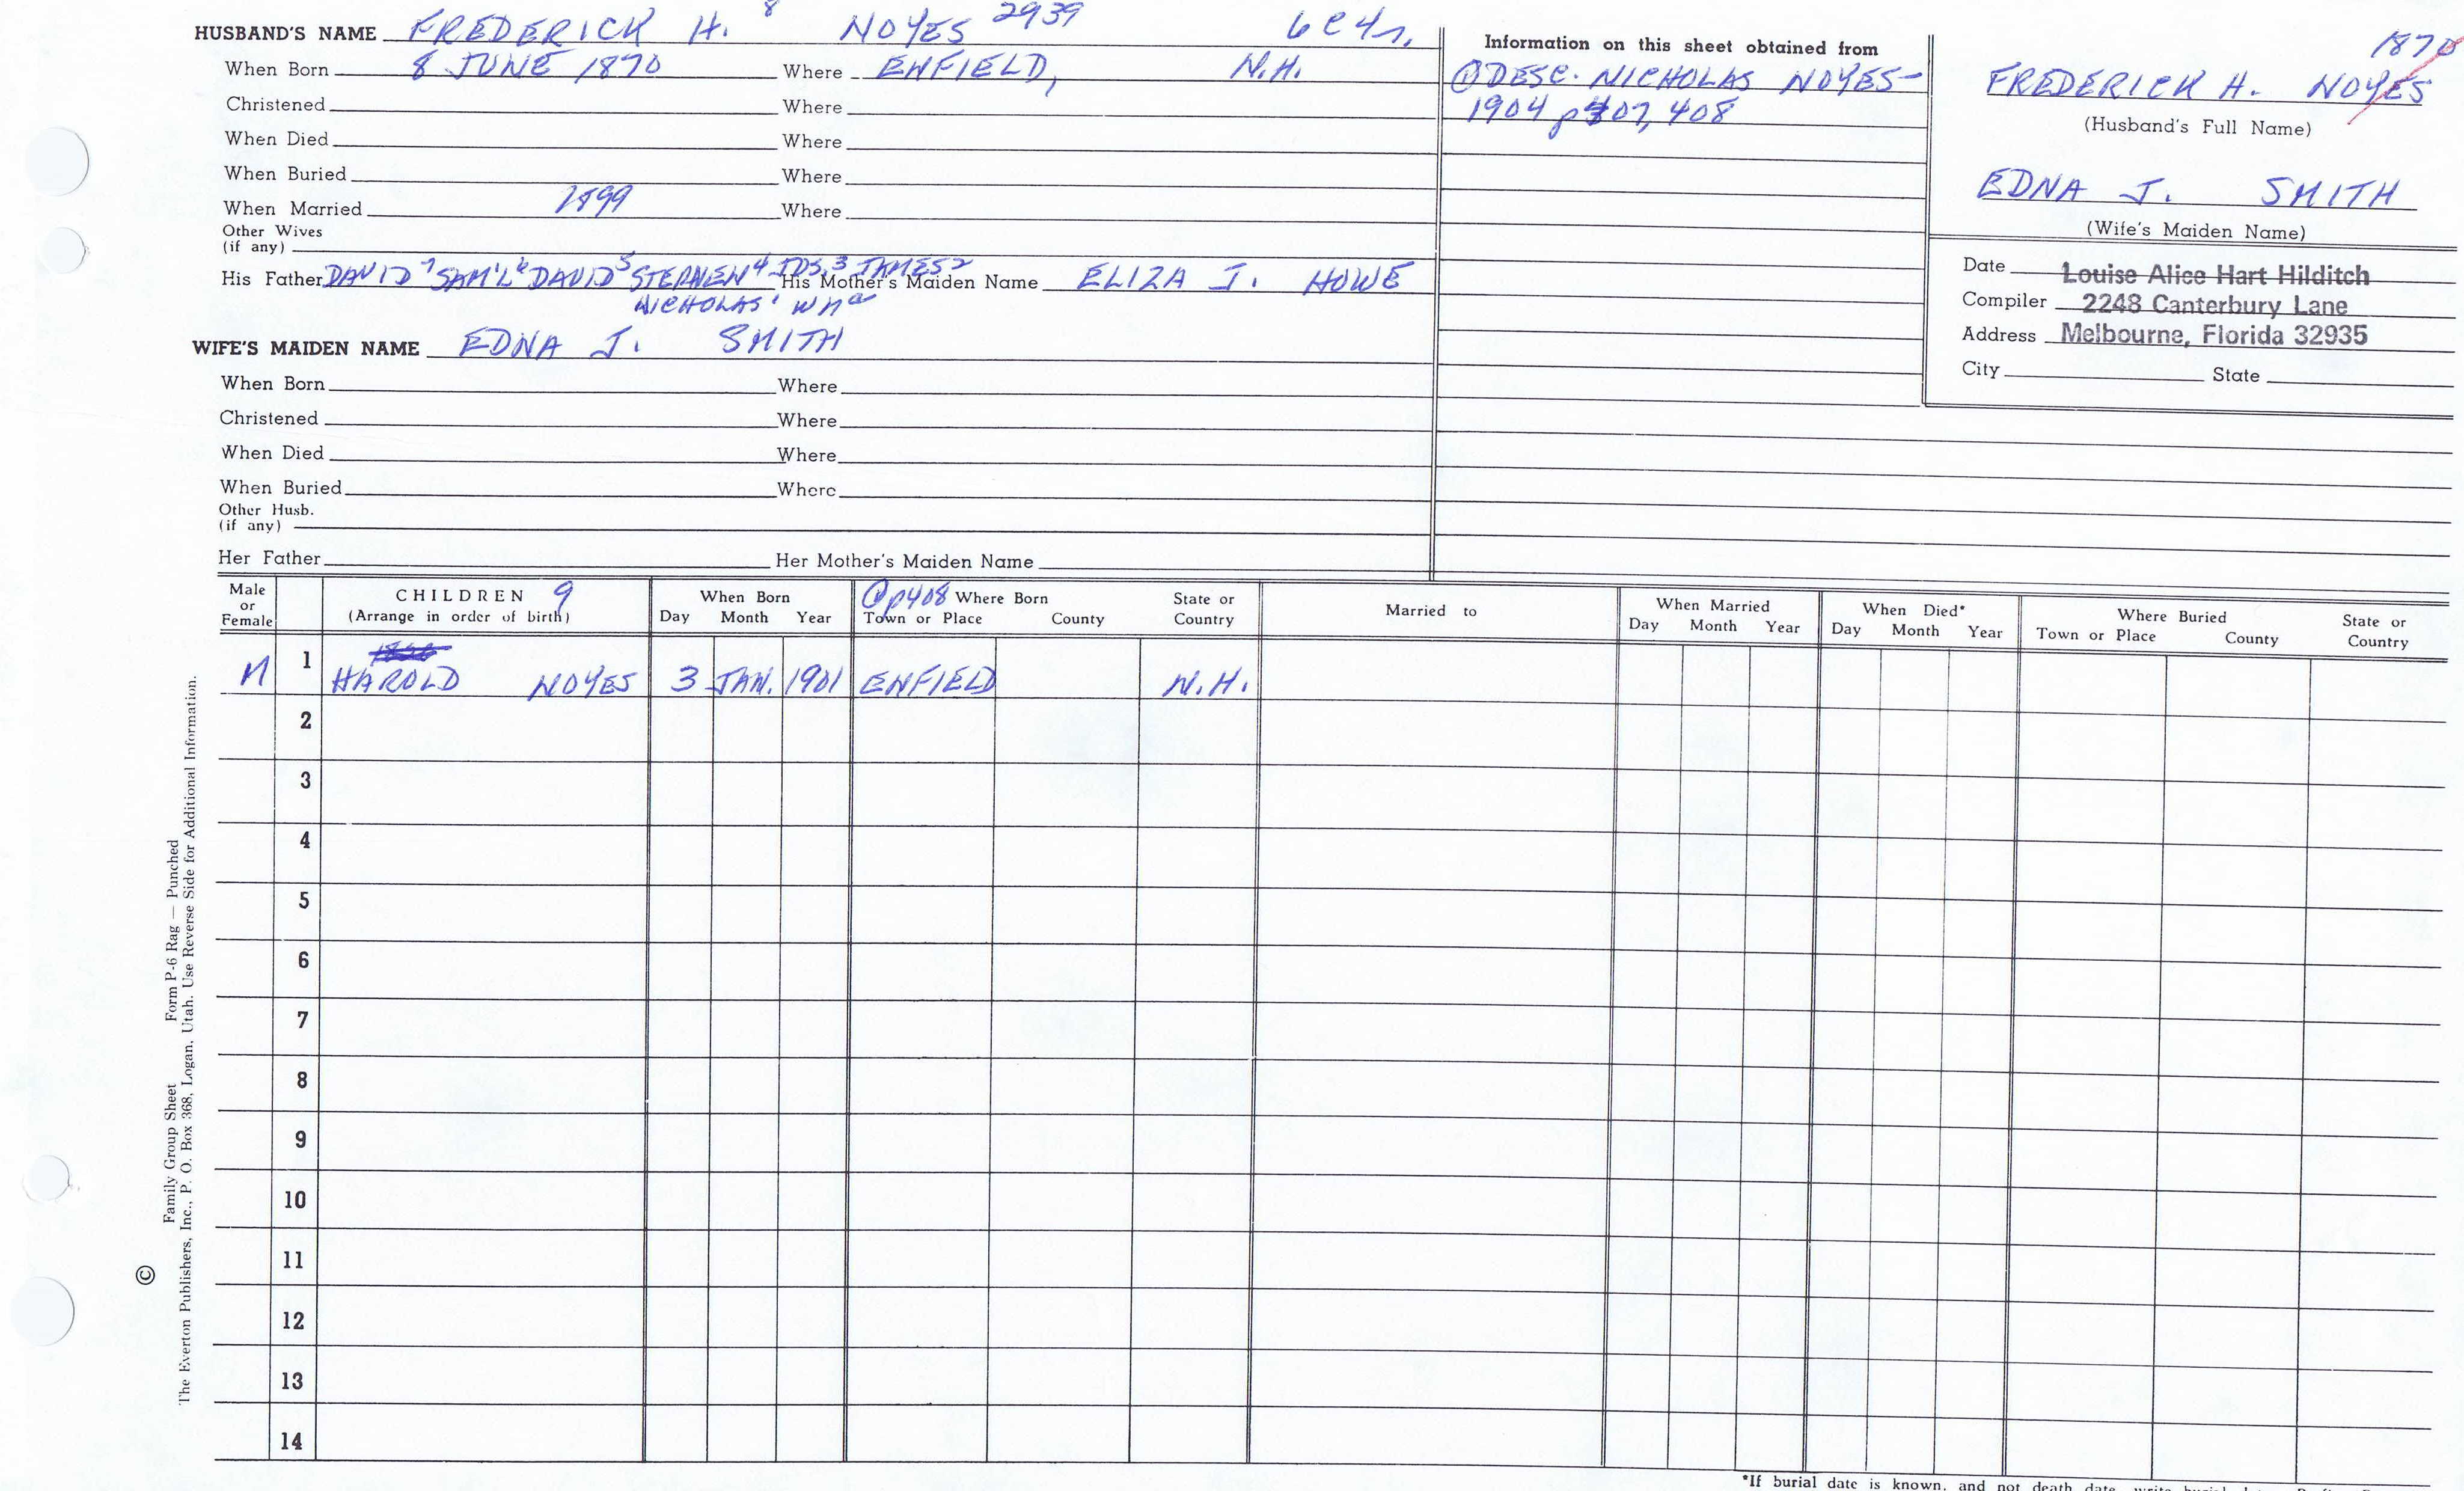 HUSBAND'S NAME FREDERICK H. 8 NOYES 2939 6C4r.
When Born 8 JUNE 1870 Where ENFIELD, N.H.
Christened Where
When Died Where
When Buried Where
When Married 1899 Where
Other Wives
(if any)
His Father DAVID 7 SAM'L 6 DAVID 5 STEPHEN 4 JOS. 3 JAMES 2 His Mother's Maiden Name ELIZA J. HOWE
NICHOLAS 1 Wm a
WIFE'S MAIDEN NAME EDNA J. SMITH
When Born Where
Christened Where
When Died Where
When Buried Where
Other Husb.
(if any)
Her Father Her Mother's Maiden Name
Information on this sheet obtained from
① DESC. NICHOLAS NOYES-
1904 p407, 408
1870
FREDERICK H. NOYES
(Husband's Full Name)
EDNA J. SMITH
(Wife's Maiden Name)
Date Louise Alice Hart Hilditch
Compiler 2248 Canterbury Lane
Address Melbourne, Florida 32935
City State
Male or Female
CHILDREN 9
(Arrange in order of birth)
When Born
Day Month Year
① p408 Where Born
Town or Place County State or Country
Married to
When Married
Day Month Year
When Died*
Day Month Year
Where Buried
Town or Place County State or Country
M 1 HAROLD NOYES 3 JAN. 1901 ENFIELD N.H.
2
3
4
5
6
7
8
9
10
11
12
13
14
© Family Group Sheet Form P-6 Rag — Punched
The Everton Publishers, Inc., P. O. Box 368, Logan, Utah. Use Reverse Side for Additional Information.
*If burial date is known, and not death date, write burial